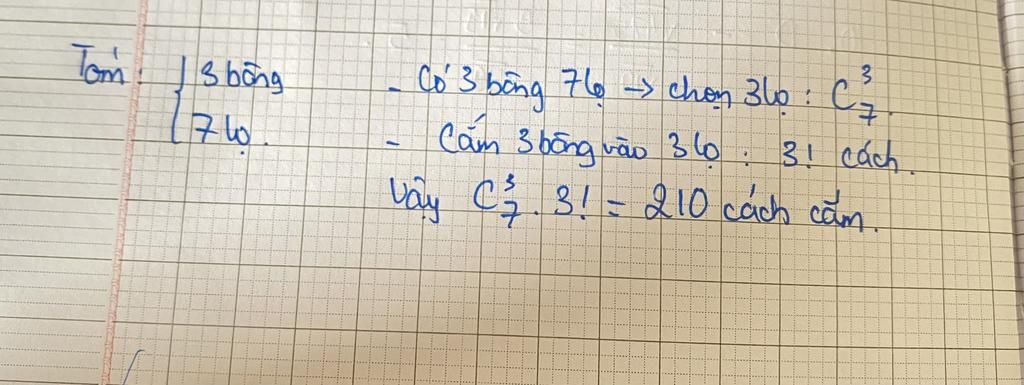 Tóm: { 3 bông
7 lọ.
- Có 3 bông 7 lọ → chọn 3 lọ : C₇³.
- Cắm 3 bông vào 3 lọ : 3! cách.
Vậy C₇³ . 3! = 210 cách cắm.